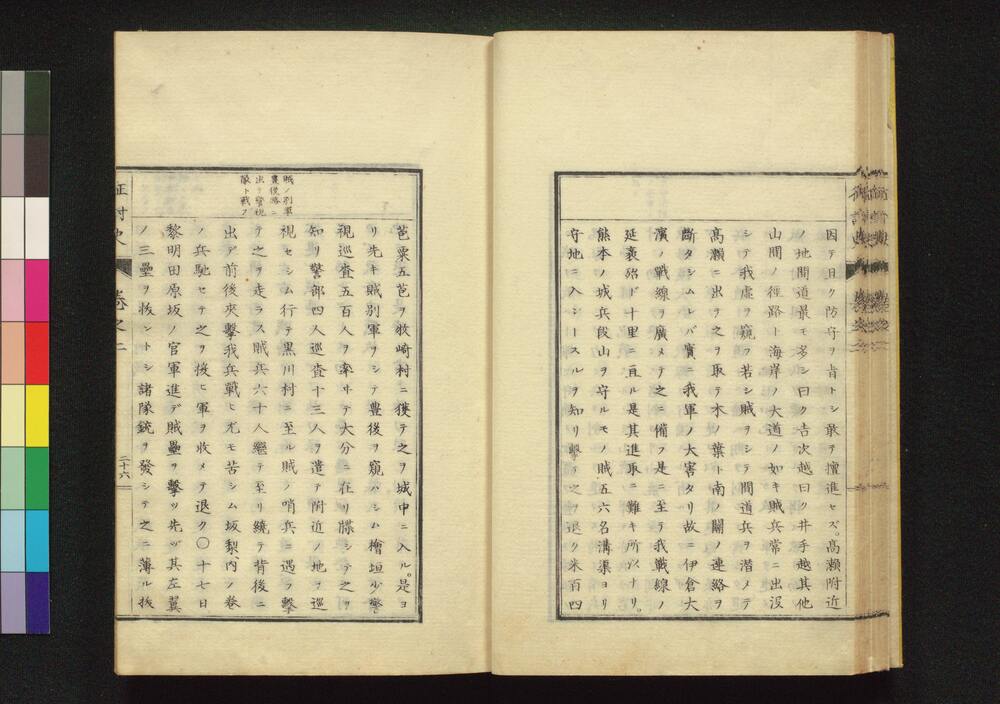 因テ日ク防守ヲ旨トシ敢テ擅進セズ。高瀬附近
ノ地間道最モ多シ曰ク吉次越曰ク井手越其他
山間ノ徑路ト海岸ノ大道ノ如キ賊兵常ニ出沒
シテ我虛ヲ窺フ若シ賊ヲシテ間道兵ヲ潜メテ
高瀬ニ出テ之ヲ取テ木ノ葉ト南ノ關ノ連絡ヲ
斷タシムレバ實ニ我軍ノ大害タリ故ニ伊倉大
濱ノ戰線ヲ廣メテ之ニ備フ是ニ至テ我戰線ノ
延袤殆ド十里ニ亘ル是其進取ニ難キ所以ナリ。
熊本ノ城兵段山ヲ守ルモノ賊五六名溝渠ヨリ
守地ニ入ントスルヲ知リ擊テ之ヲ退ク米百四
芭粟五芭ヲ牧崎村ニ獲テ之ヲ城中ニ入ル。是ヨ
リ先キ賊別軍ヲシテ豊後ヲ窺ハシム檜垣少警
視巡査五百人ヲ率ヰテ大分ニ在リ諜シテ之ヲ
知リ警部四人巡査十三人ヲ遣テ附近ノ地ヲ巡
視セシム行テ黒川村ニ至ル賊ノ哨兵ニ遇フ擊
テ之ヲ走ラス賊兵六十人繼テ至リ繞テ背後ニ
出デ前後夾擊我兵戰ヒ尤モ苦シム坂梨内ノ巻
ノ兵馳セテ之ヲ援ヒ軍ヲ收メテ退ク〇十七日
黎明田原坂ノ官軍進デ賊壘ヲ擊ツ先ヅ其左翼
ノ三壘ヲ拔ントシ諸隊銃ヲ發シテ之ニ薄ル拔
賊ノ別軍
豊後路ニ
出テ警視
隊ト戰フ
征討史
卷之二
二十六